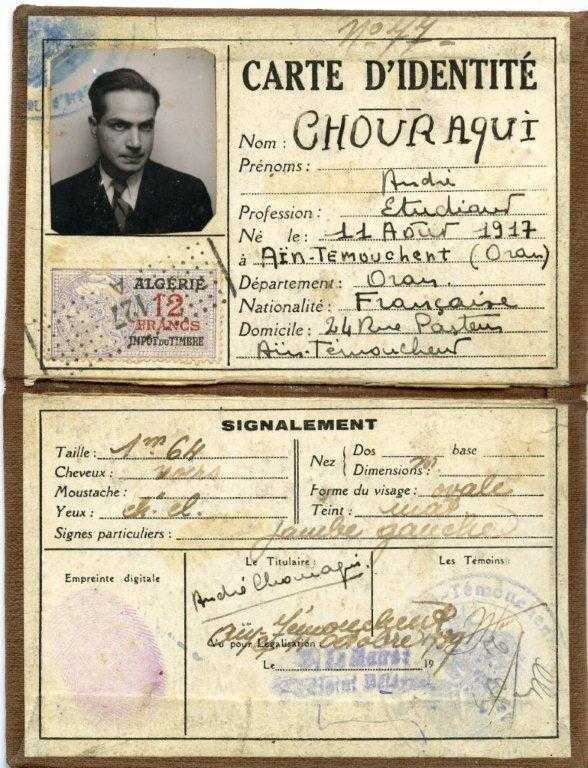 No 77
CARTE D'IDENTITÉ
Nom : CHOURAQUI
Prénoms :
André
Profession : Etudiant
Né le : 11 Août 1917
à Aïn-Temouchent (Oran)
Département : Oran
Nationalité : Française
Domicile : 24 Rue Pasteur
Aïn-Témouchent
ALGÉRIE
12
FRANCS
IMPÔT DU TIMBRE
SIGNALEMENT
Taille : 1m 64
Cheveux : noirs
Moustache :
Yeux :
Signes particuliers : jambe gauche
Nez
Dos base
Dimensions : m
Forme du visage : ovale
Teint : mat
Empreinte digitale
Le Titulaire :
André Chouraqui
Les Témoins :
Aïn-Témouchent
Vu pour Légalisation
Octobre
Le 19